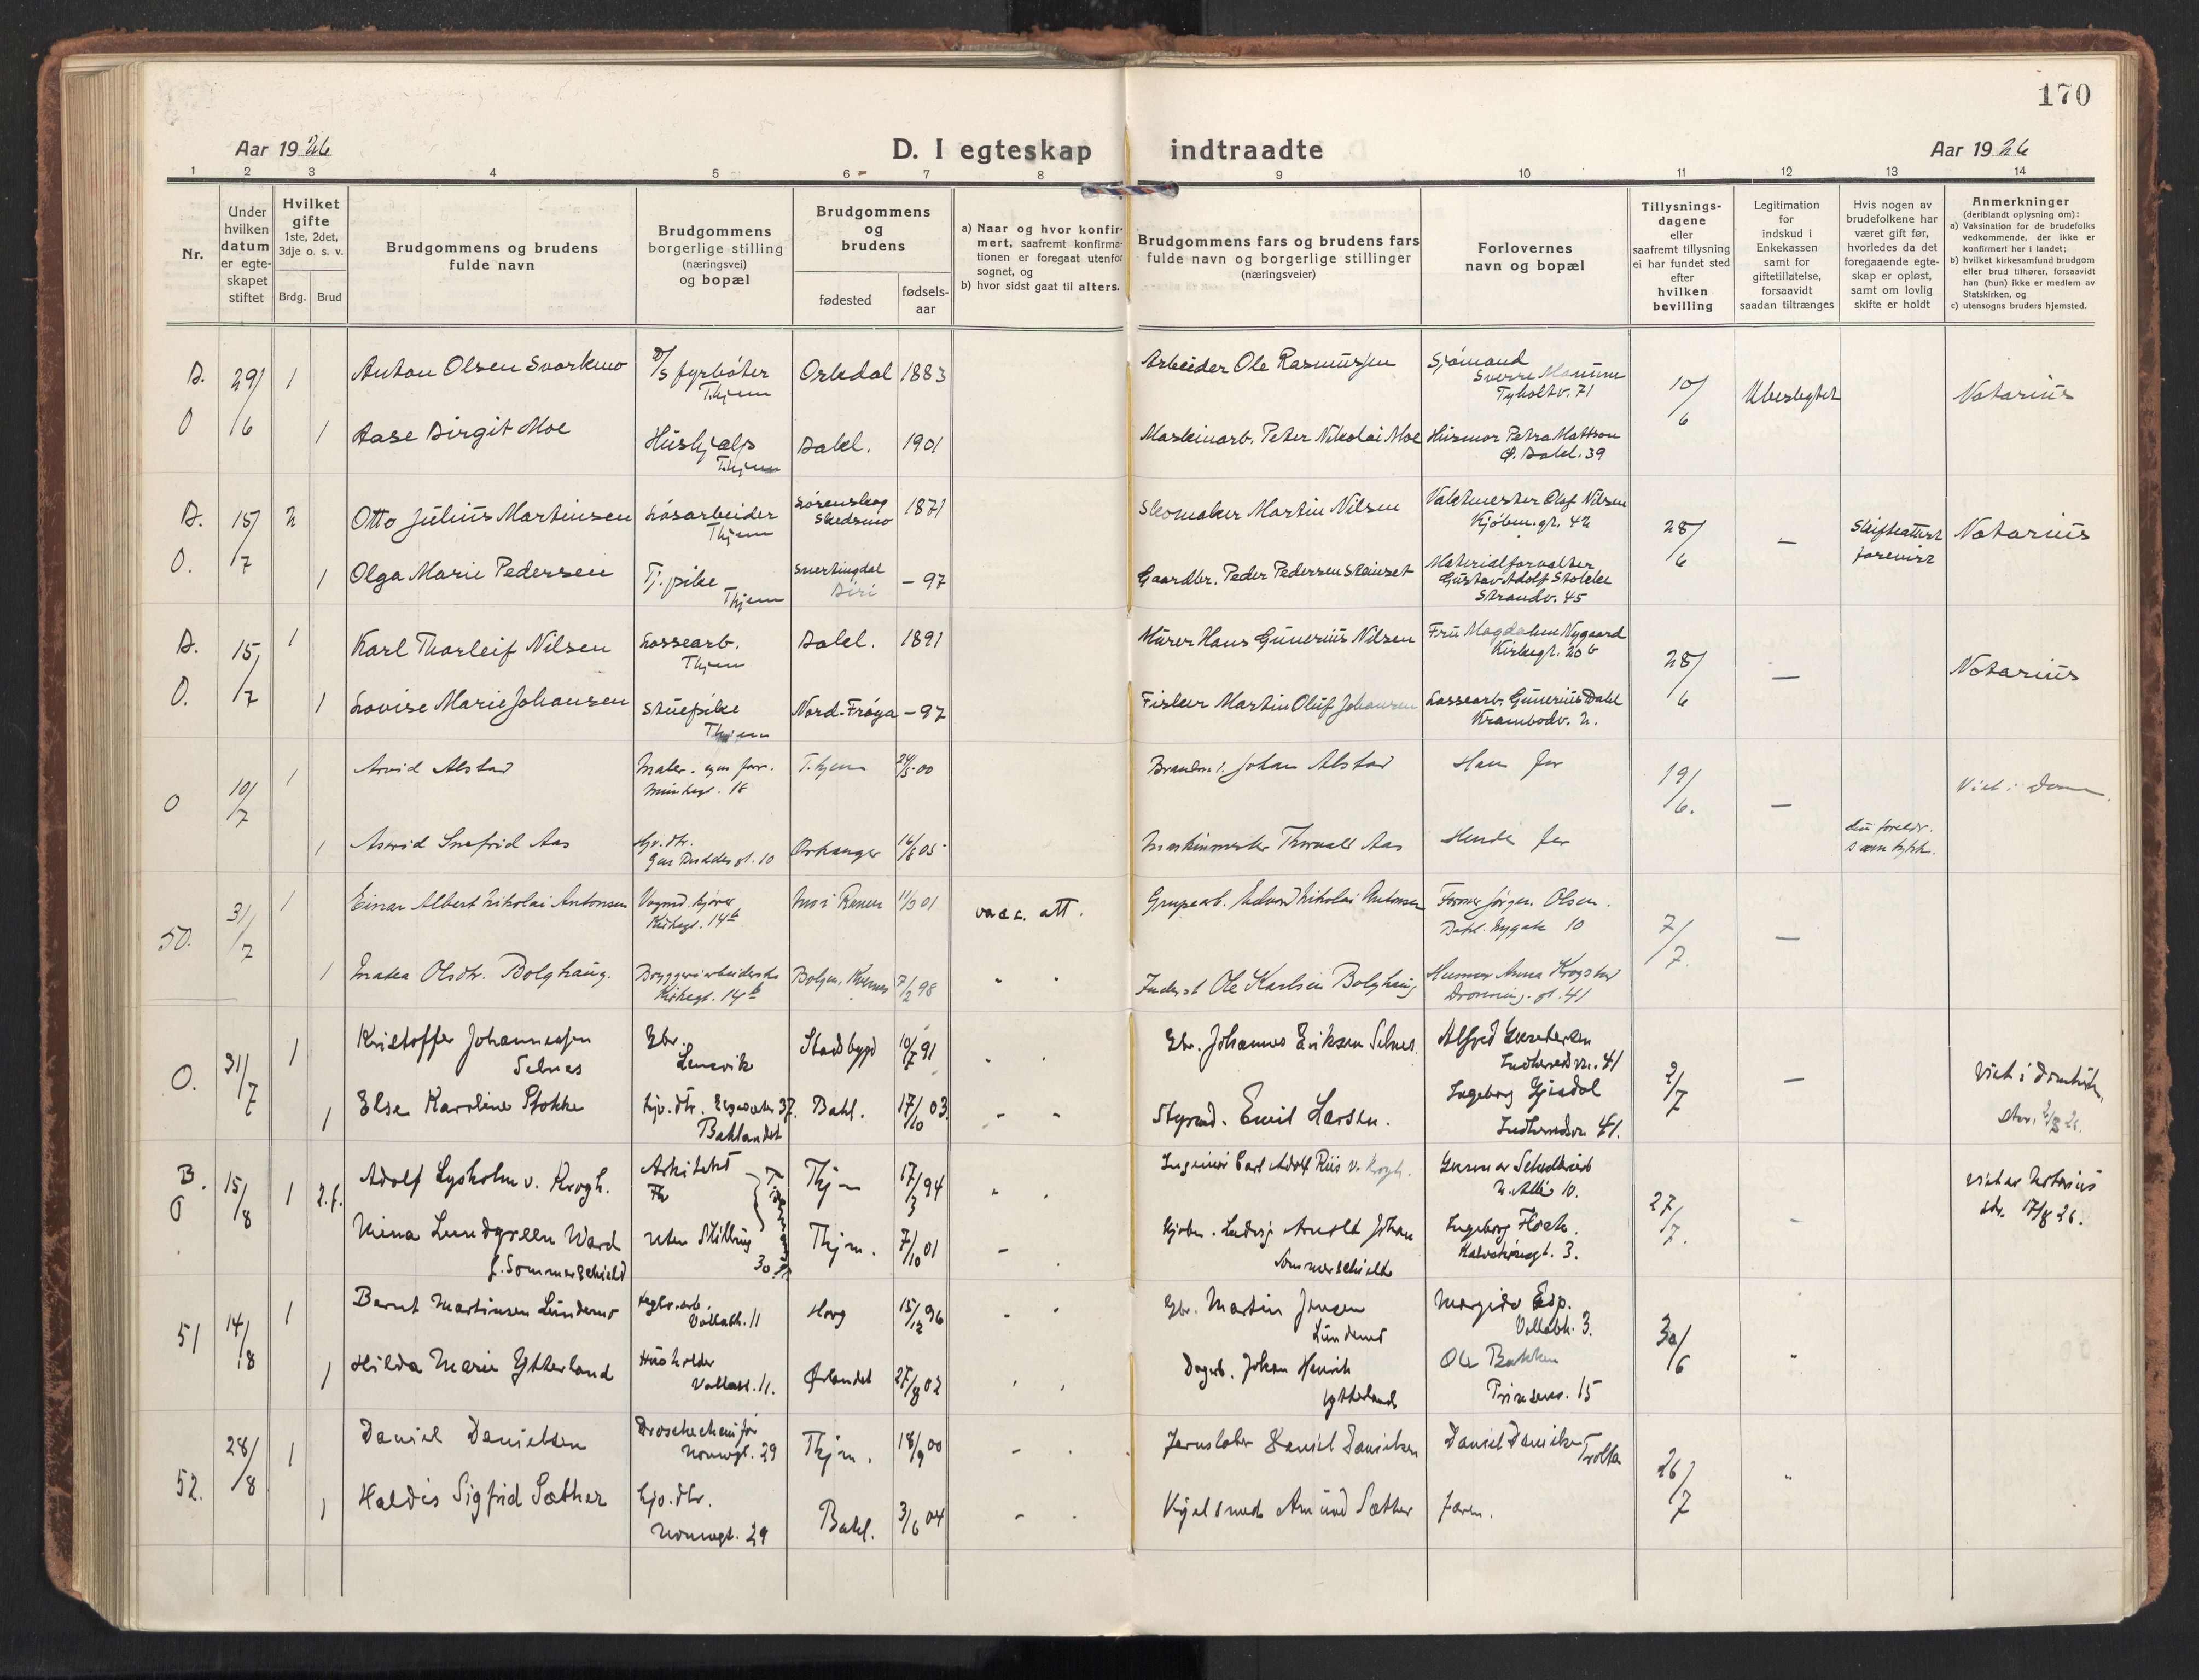 170
Aar 1926
D. I egteskap indtraadte
Aar 1926
1 2 3 4 5 6 7 8 9 10 11 12 13 14
Nr.
Under hvilken datum er egteskapet stiftet
Hvilket gifte
1ste, 2det, 3dje o. s. v.
Brdg. Brud
Brudgommens og brudens fulde navn
Brudgommens borgerlige stilling (næringsvei) og bopæl
Brudgommens og brudens
fødested
fødsels-aar
a) Naar og hvor konfirmert, saafremt konfirmationen er foregaat utenfor sognet, og
b) hvor sidst gaat til alters.
Brudgommens fars og brudens fars fulde navn og borgerlige stillinger (næringsveier)
Forlovernes navn og bopæl
Tillysnings-dagene eller saafremt tillysning ei har fundet sted efter hvilken bevilling
Legitimation for indskud i Enkekassen samt for giftetillatelse, forsaavidt saadan tiltrænges
Hvis nogen av brudefolkene har været gift før, hvorledes da det foregaaende egteskap er opløst, samt om lovlig skifte er holdt
Anmerkninger
(deriblandt oplysning om):
a) Vaksination for de brudefolks vedkommende, der ikke er konfirmert her i landet;
b) hvilket kirkesamfund brudgom eller brud tilhører, forsaavidt han (hun) ikke er medlem av Statskirken, og
c) utensogns bruders hjemsted.
B. 29/6 1 Anton Olsen Svorkmo D/S fyrbøter Thjem Orkdal 1883 Arbeider Ole Rasmussen Sjømand Sverre Tyholtv. 71 10/6 Notarius
O 1 Aase Birgit Moe Hushjælp Thjem Bakl. 1901 Maskinarb. Peter Nikolai Moe Husmor Petra Mattson Ø. Bakl. 39
B. 15/7 2 Otto Julius Martinsen Løsarbeider Thjem Lørenskog Skedsmo 1871 Skomaker Martin Nilsen Vaktmester Olaf Nilsen Kjøbm.gt. 42 28/6 — Skifteattest forevist Notarius
O. 1 Olga Marie Pedersen Tj.pike Thjem Snertingdal Biri – 97 Gaardbr. Peder Pedersen Materialforvalter Gustav Adolf Stokke Strandv. 45
B. 15/7 1 Karl Thorleif Nilsen Lossearb. Thjem Bakl. 1891 Murer Hans Gunerius Nilsen Fru Magdalene Nygaard Kirkegt. 20 b 28/6 — Notarius
O. 1 Lovise Marie Johansen Stuepike Thjem Nord-Frøya – 97 Fisker Martin Oluf Johansen Lossearb. Gunerius Dahl Krambodv. 2.
O 10/7 1 Arvid Alstad Maler 18 T.hjem 24/5 00 Johan Alstad Hans far 19/6. — Viet i Dom.
1 Astrid Snefrid Aas Hjv. dtr. 10 Orkanger 16/8 05 Maskinmester Thorvald Aas Hendes far
50. 31/7 1 Einar Albert Nikolai Antonsen Vognm. kjører Kirkegt. 14 b Mo i Ranen 11/3 01 vacc. att. Grupearb. Edvard Nikolai Antonsen Former Jørgen Olsen. Bakl. Nygate 10 7/7. —
1 Olsdtr. Bolghaug. Bryggeriarbeiderske Kirkegt. 14 b 7/2 98 " " Inderst Ole Karlsen Bolghaug Husmor Anna Krogstad Dronning.gt. 41
O. 31/7 1 Kristoffer Johannessen Selnes Gbr. Lensvik Stadsbygd 10/7 91 " " Gbr. Johannes Eriksen Selnes. Alfred Indherredsv. 41 2/7 —
1 Else Karoline Stokke Hjv. dtr. 37. Baklandet Bakl. 17/10 03. " " Styrmd. Emil Larsen. Ingeborg Gjisdal Indherredsv. 41.
B. O 15/8 1 2.g. Adolf Lysholm v. Krogh. Arkitekt Thjm 17/3 94 " " Ingeniør Carl Adolf Riis v. Krogh. Gunnar N. Allé 10. 27/7. – Viet av Notarius 17/8 26.
Nina Lundgreen Ward f. Sommerschield uten stilling Thjm. 7/10 01 – Kjøbm. Ludvig Arnold Johan Sommerschield Ingeborg Floch. Kalvskindsgt. 3.
51 14/8 1 Bernt Martinsen Lundemo Vollabk. 11 Horg 15/12 96 " " Gbr. Martin Jensen Lundemo Margido Esp. Vollabk. 3. 30/6 "
1 Hilda Marie Ytterland Husholder Vollabk. 11. Ørlandet 27/8 02 " " Dagarb. Johan Henrik Ytterland Ole Bakken Prinsens. 15
52. 28/8 1 Daniel Danielsen Droschechauffør Nonnegt. 29 Thjm. 18/9 00 – . Jernstøber Daniel Danielsen Daniel Danielsen Trolla 26/7 "
1 Haldis Sigfrid Sæther Hjv. dtr. Nonnegt. 29 Bakl. 3/6 04 – . Kjelsmed Amund Sæther faren.